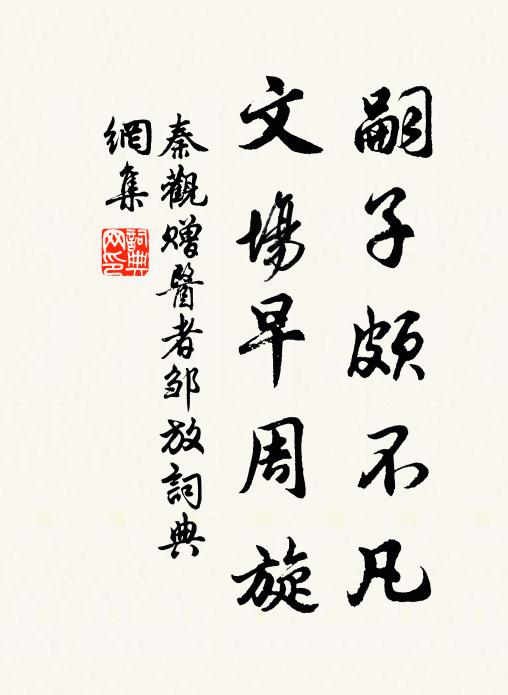 嗣子頗不凡
文場早周旋
秦觀贈醫者鄒放詞典
網集
詞典
网印